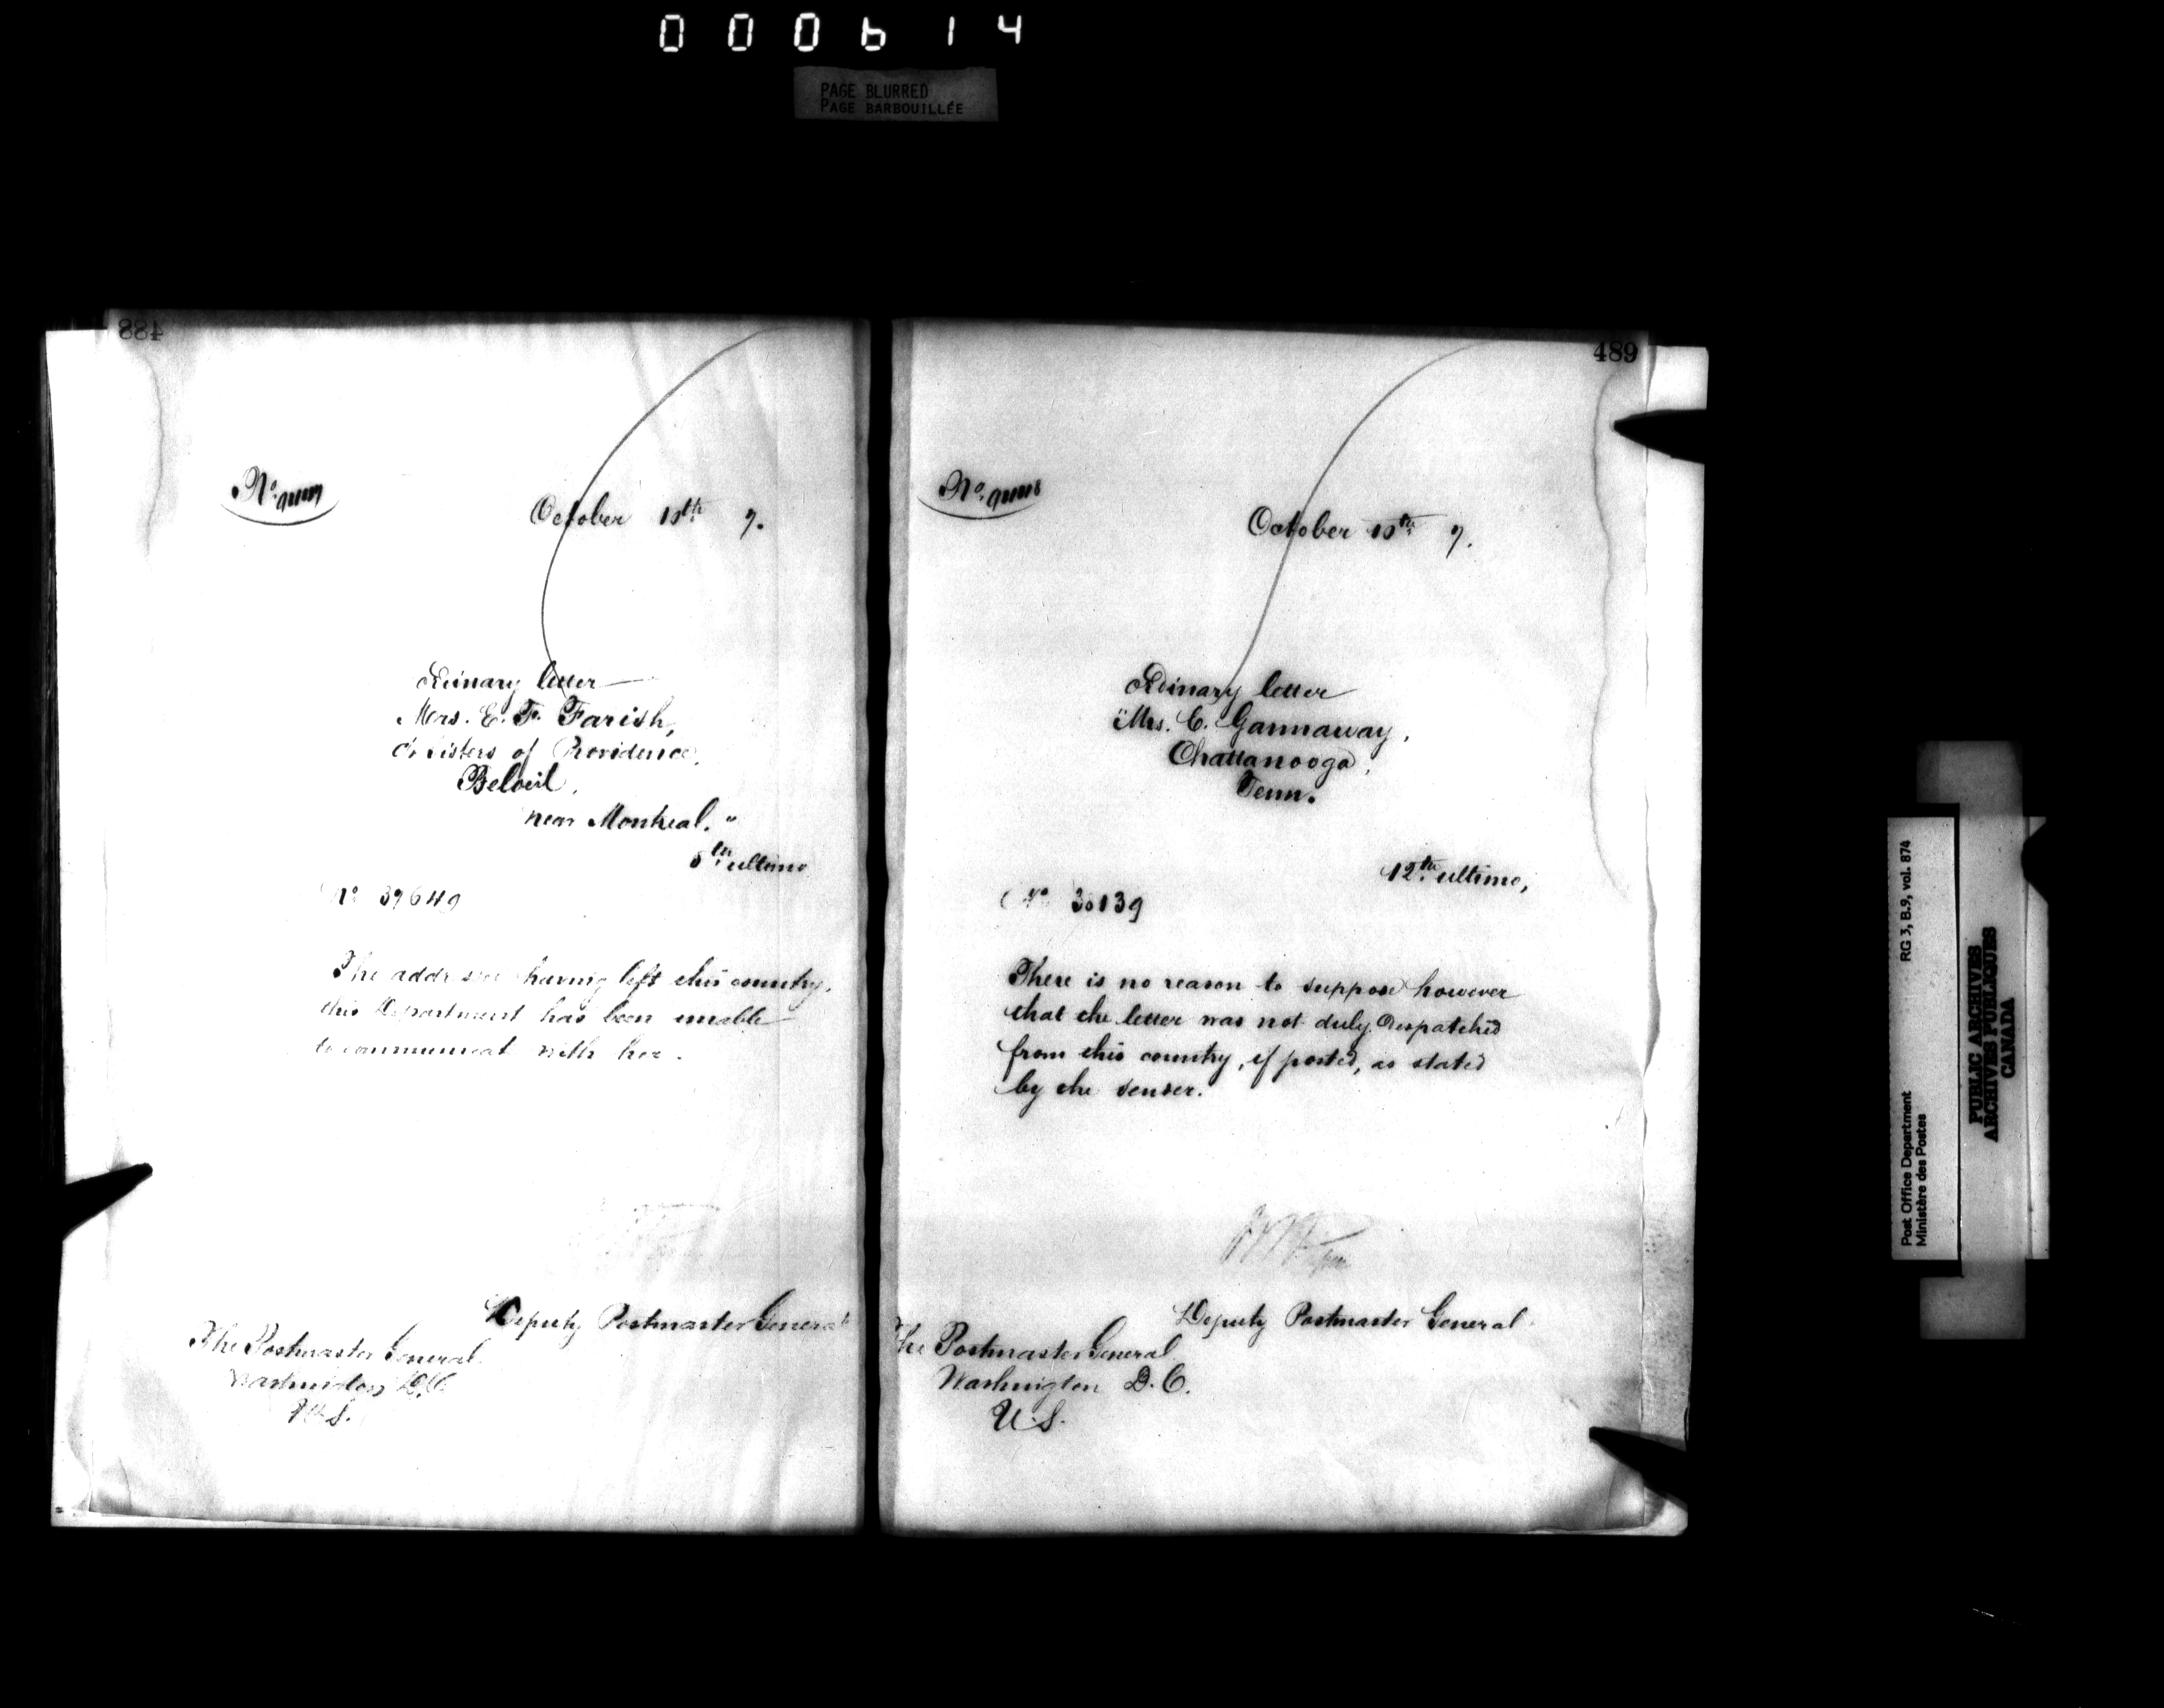 000614
PAGE BLURRED
PAGE BARBOUILLÉE
488
No.
October th 7.
Ordinary letter
Mrs. E. F. Farish,
c/o Sisters of Providence,
Beloeil,
near Montreal."
8th ultimo
No 39649
The addressee having left this country,
this Department has been unable
to communicate with her.
Deputy Postmaster General
The Postmaster General
Washington D.C.
U.S.
489
No.
October th 7.
Ordinary letter
"Mrs. E. Gannaway,
Chattanooga,
Tenn.
12th ultimo,
No 30139
There is no reason to suppose however
that the letter was not duly despatched
from this country, if posted, as stated
by the sender.
Deputy Postmaster General
The Postmaster General
Washington D.C.
U.S.
Post Office Department
Ministère des Postes
RG 3, B.9, vol. 874
PUBLIC ARCHIVES
ARCHIVES PUBLIQUES
CANADA